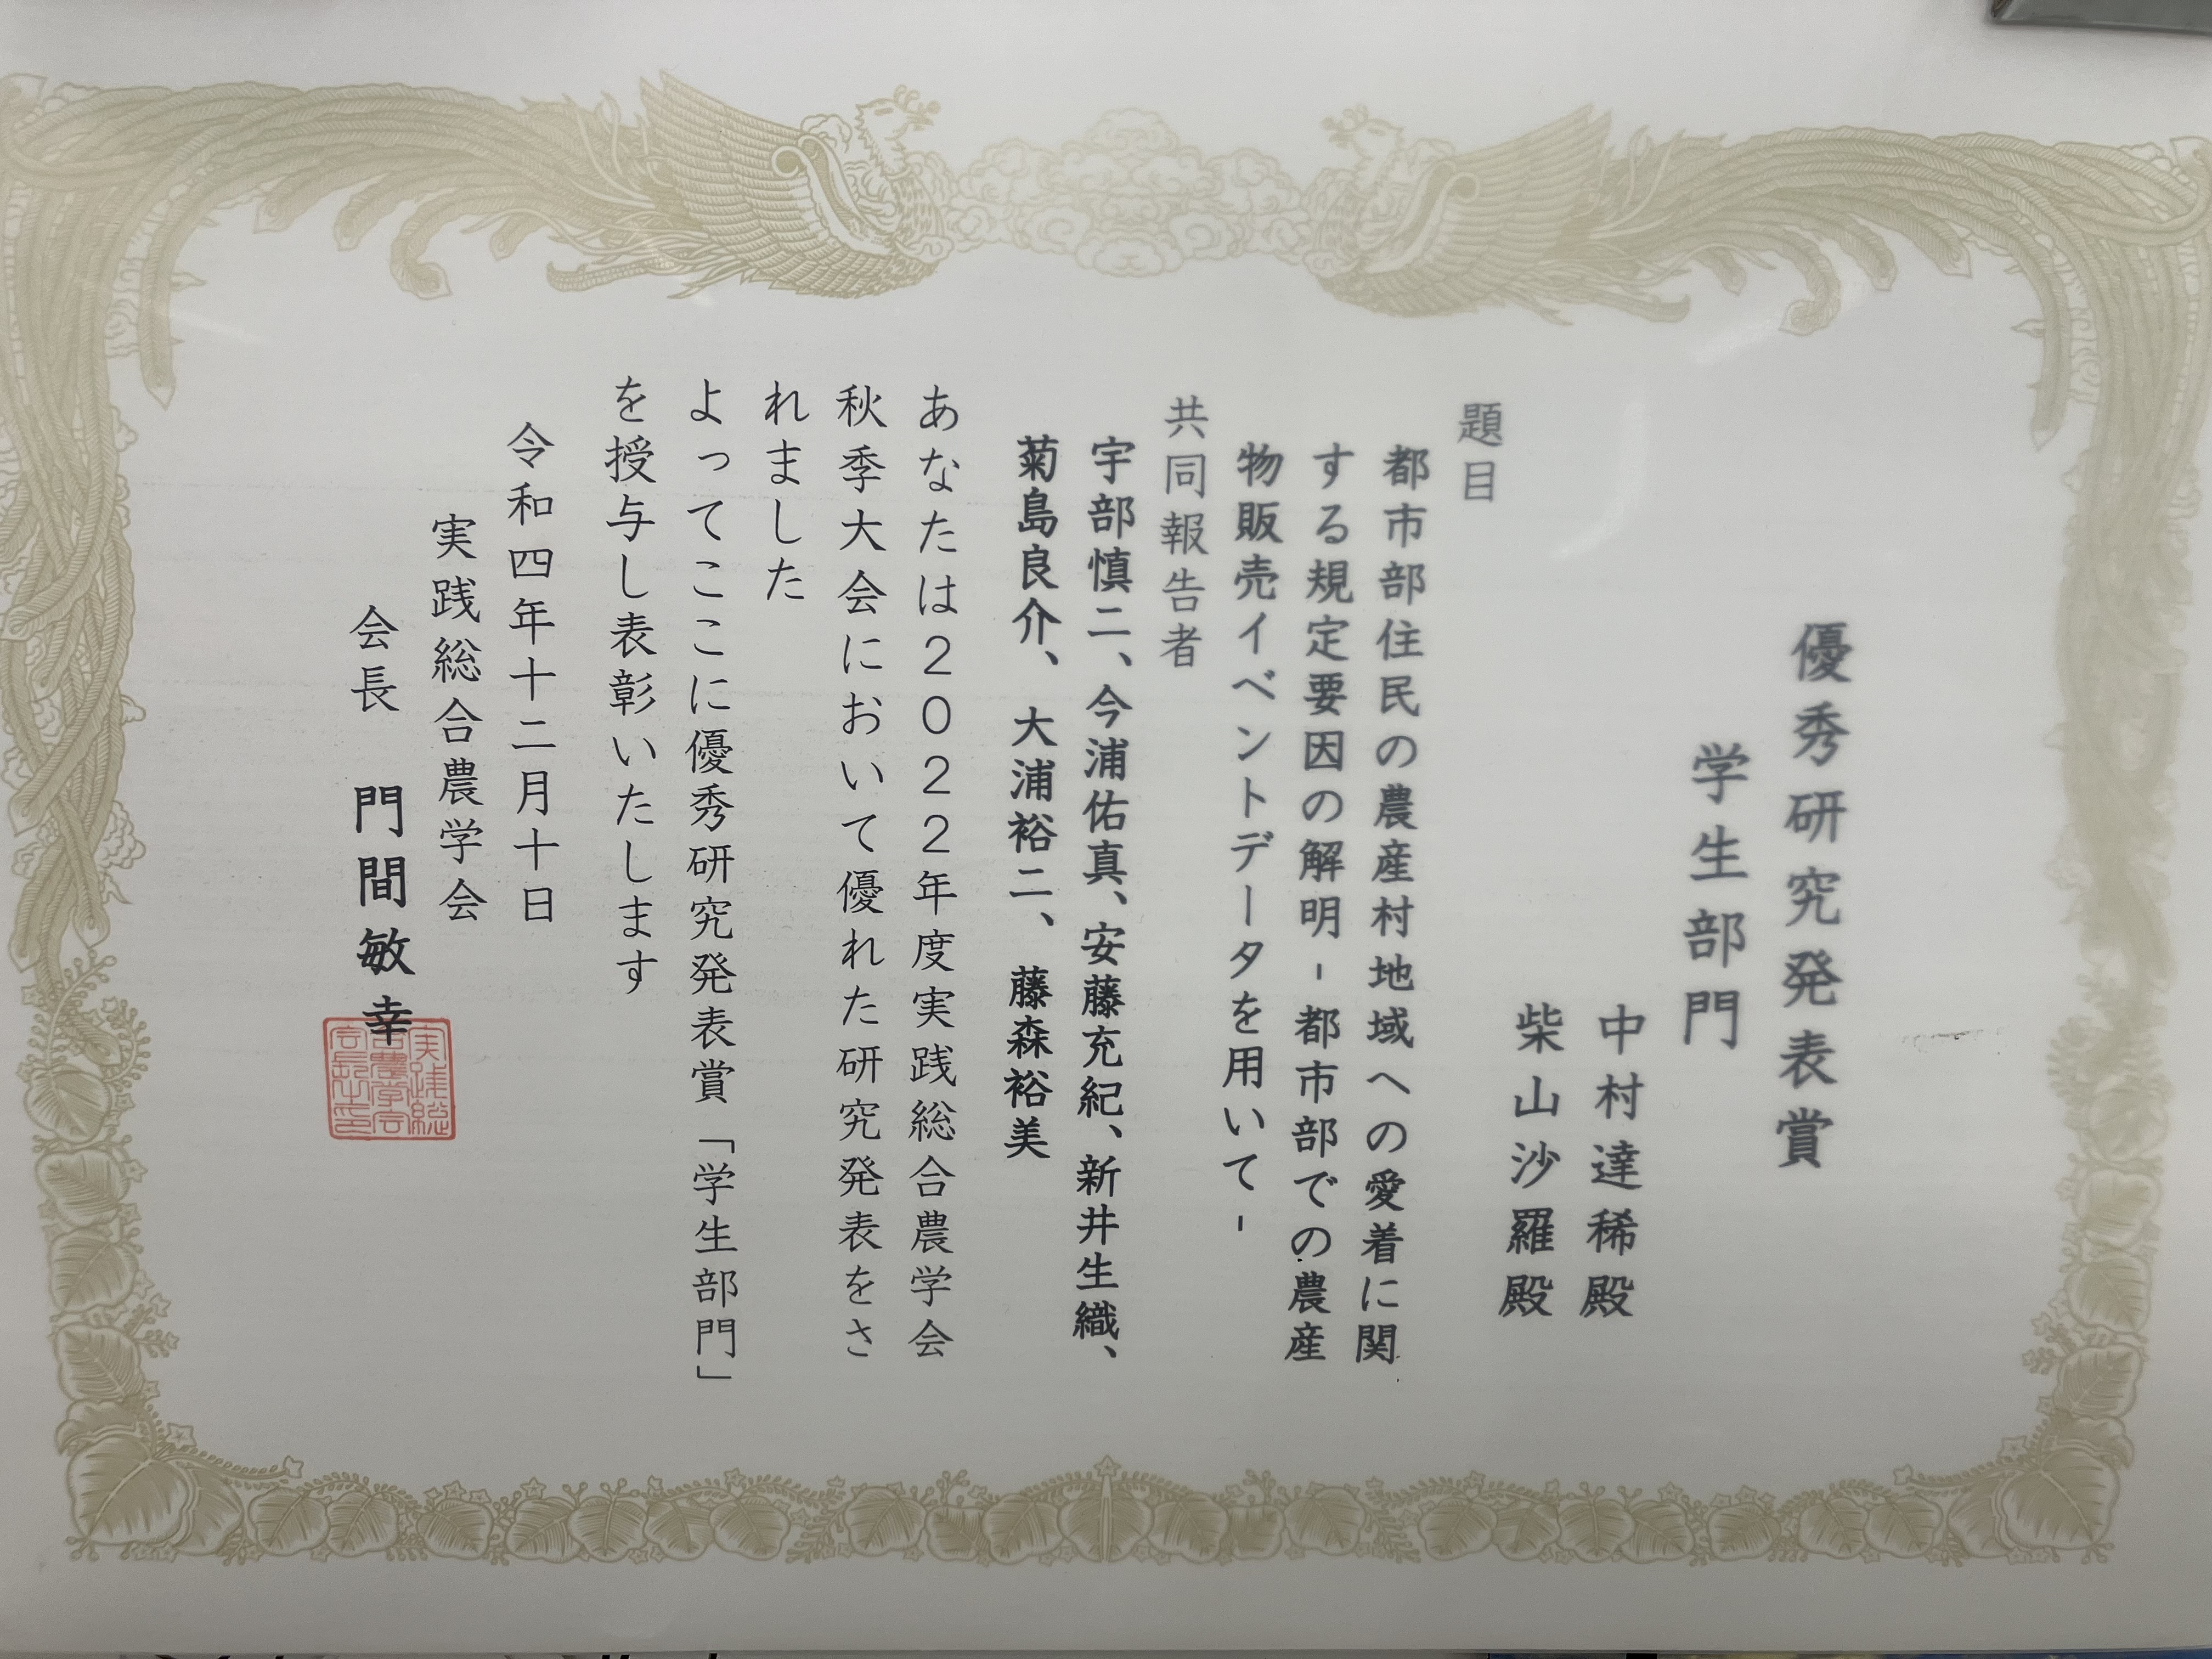 優秀研究発表賞
学生部門
中村達稀殿
柴山沙羅殿
題目
都市部住民の農産村地域への愛着に関
する規定要因の解明-都市部での農産
物販売イベントデータを用いて-
共同報告者
宇部慎二、今浦佑真、安藤充紀、新井生織、
菊島良介、大浦裕二、藤森裕美
あなたは2022年度実践総合農学会
秋季大会において優れた研究発表をさ
れました
よってここに優秀研究発表賞「学生部門」
を授与し表彰いたします
令和四年十二月十日
実践総合農学会
会長 門間敏幸
実践総
合農学会
会長之印